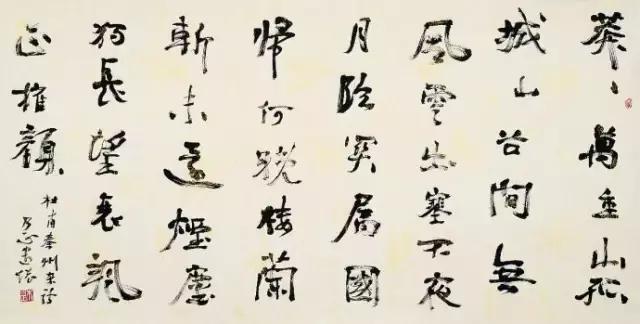 莽〻萬重山孤
城山谷間無
風雲出塞不夜
月臨關屬國
歸何晚樓蘭
斬未還煙塵
獨長望衰颯
正摧顏
杜甫秦州杂诗